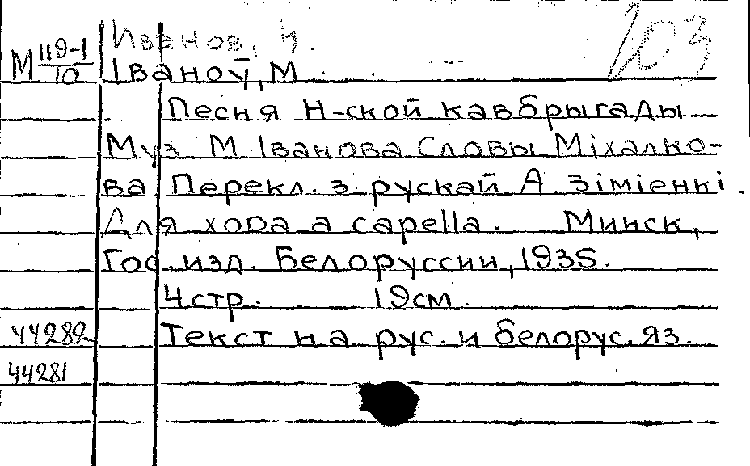 Иванов, М.
203
М 119-1/10
Іваноў, М
Песня Н-ской кавбрыгады
Муз М Іванова Словы Міхалко-
ва Перекл. з рускай А. Зіміенкі.
Для хора a capella. Минск,
Гос. изд. Белоруссии, 1935.
4 стр. 19 см.
44282 Текст на рус. и белорус. яз.
44281